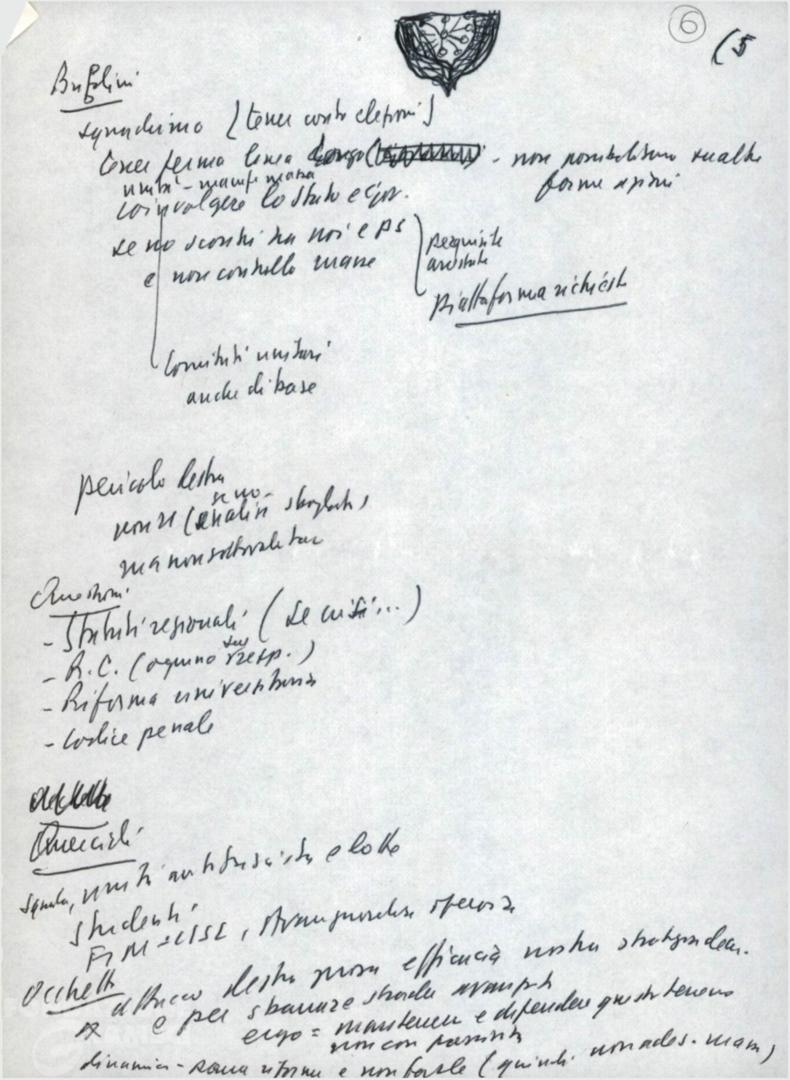 6
(5
Bufalini
squadrismo (tener conto elezioni)
tener ferma linea Longo - non possibilismo su altre
unità - manif. massa
forme azioni
coinvolgere lo Stato e gov.
se no scontri tra noi e PS
e non controllo masse
perquisite
arrestate
Piattaforma richieste
Comitati unitari
anche di base
pericolo destra
se no
non si (analisi sbagliata)
ma non sottovalutar
Questioni
- Statuti regionali (se crisi...)
- R.C. (ognuno sue resp.)
- Riforma universitaria
- Codice penale
Quercioli
Squadr, unità antifascista e lotte
studenti
FIM-CISL, avanguardia operaia
Occhetto
attacco destra prova efficacia nostra strategia dem.
e per sbarrare strada avanzata
ergo = mantenere e difendere questo terreno
non con passività
dinamica - senza riforme è non forte (quindi non ades. mass)